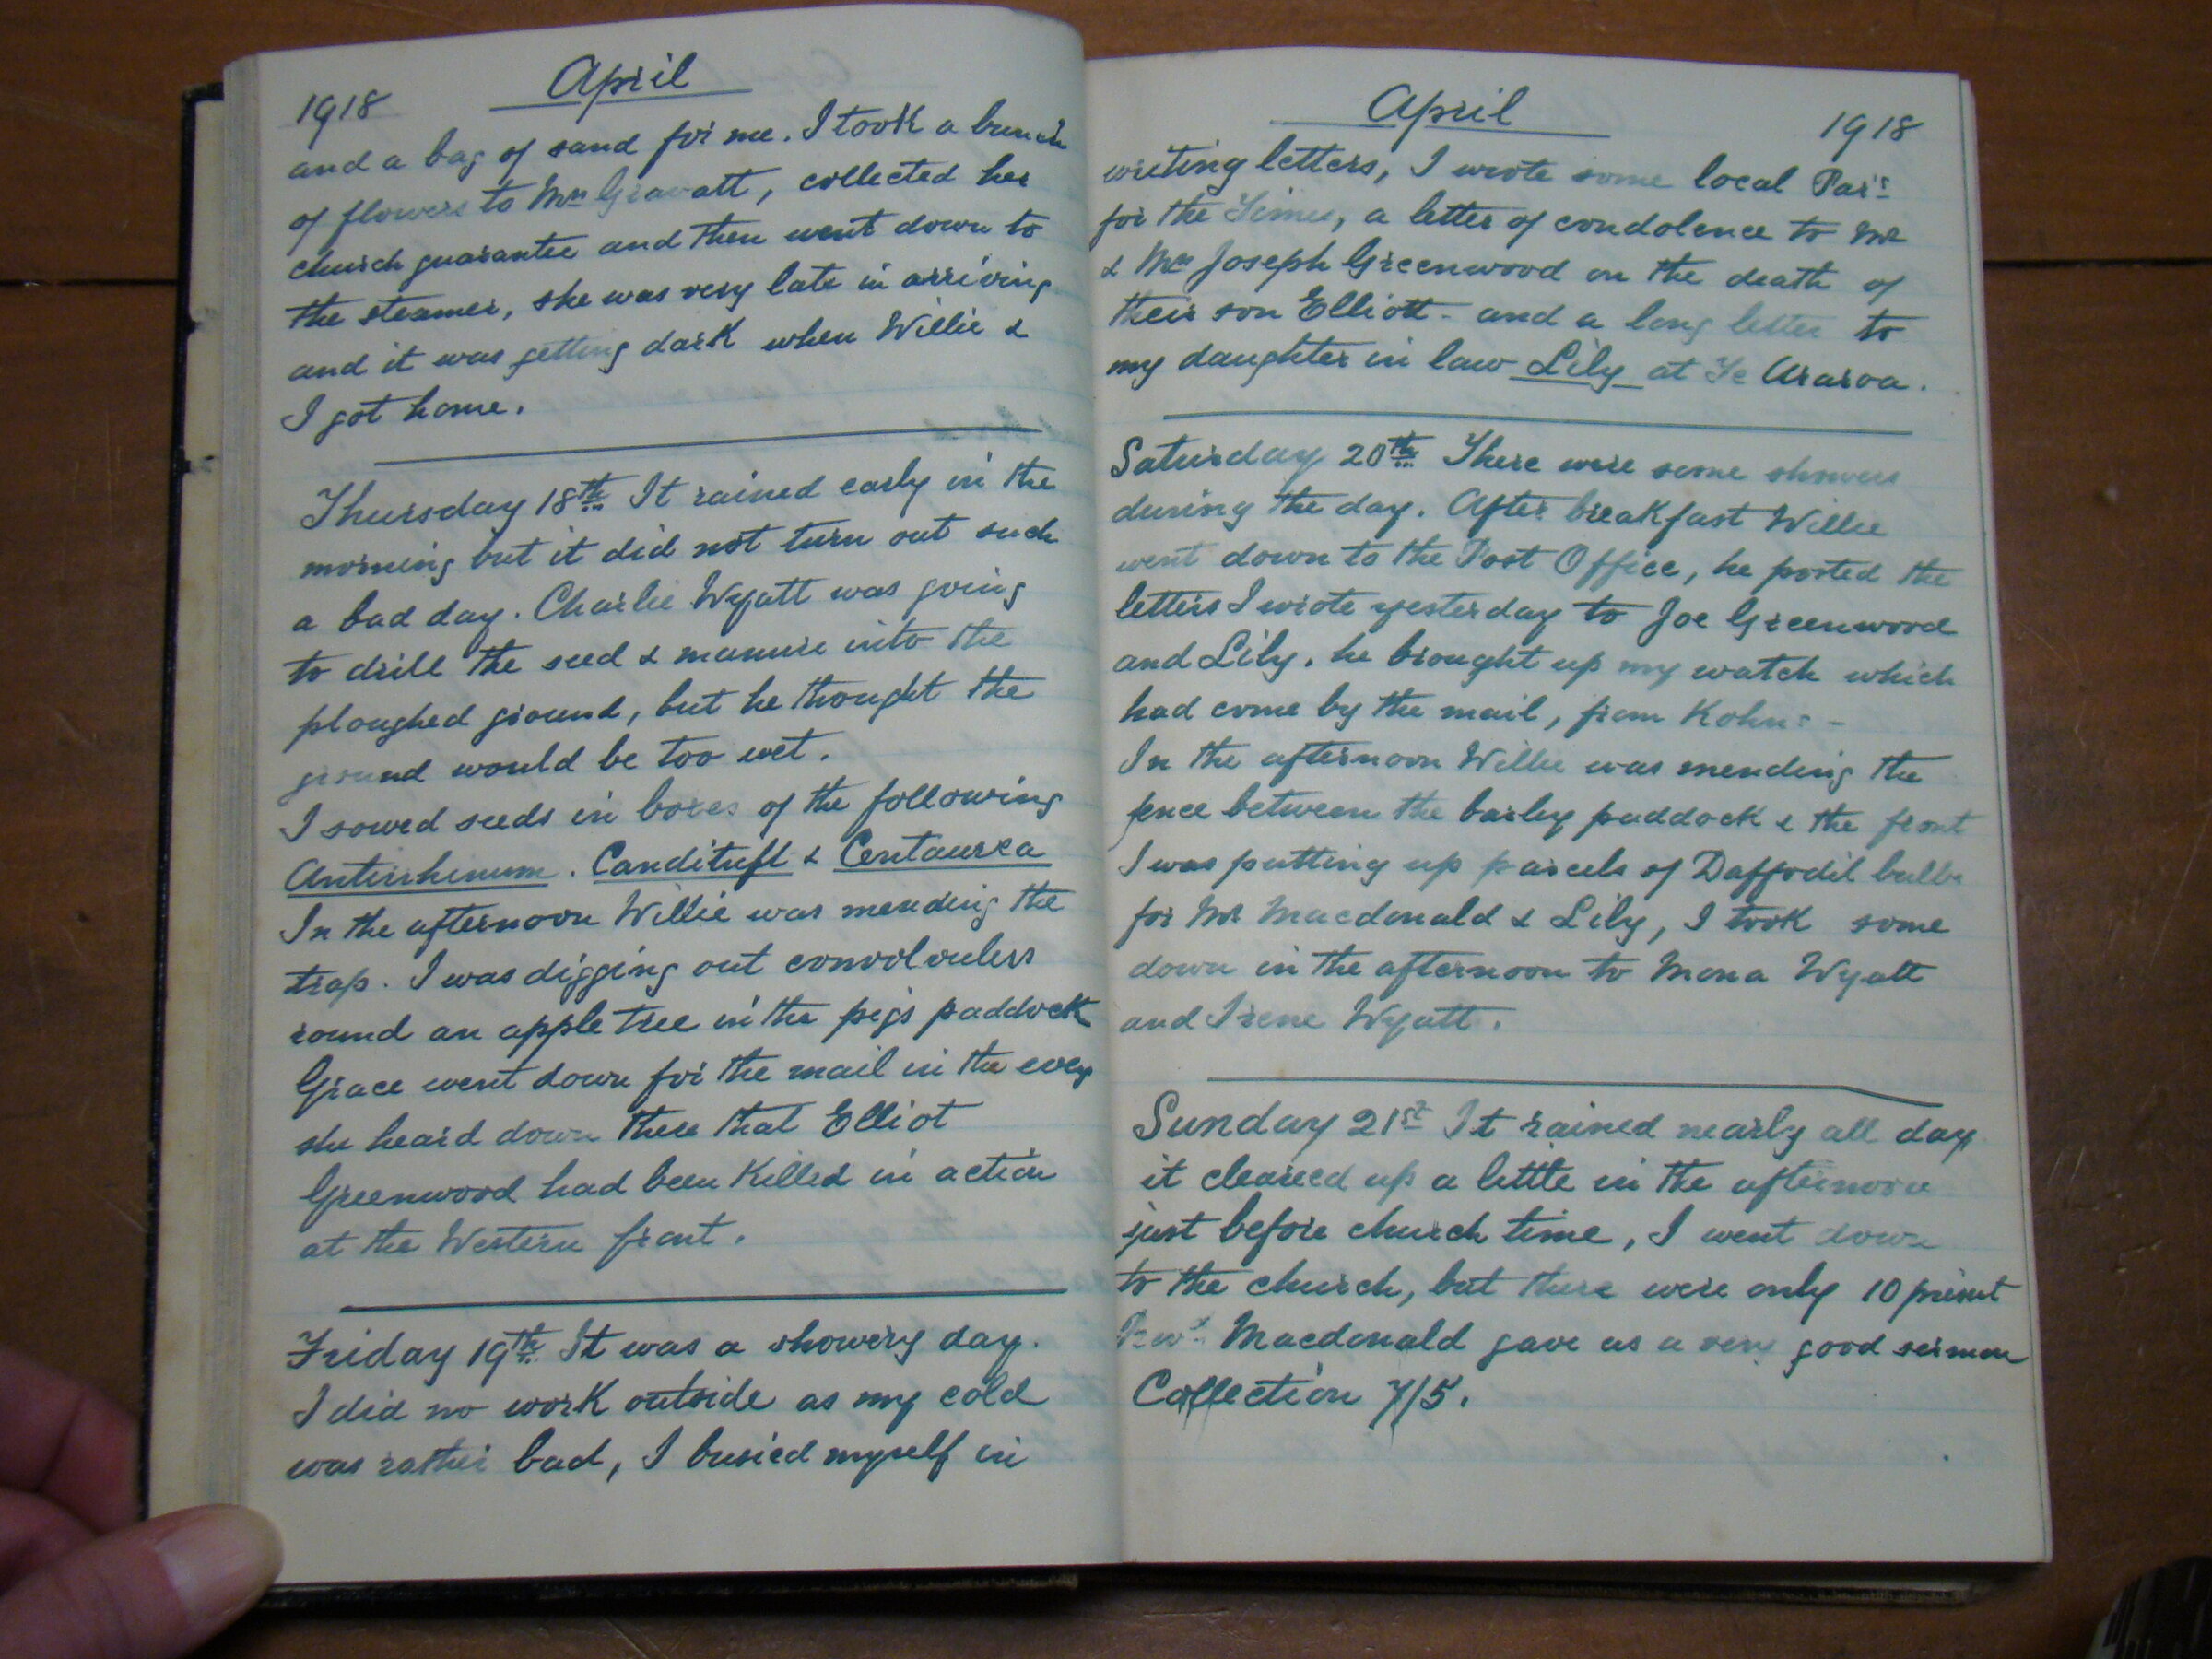 April
1918
and a bag of sand for me. I took a bunch
of flowers to Mrs Gravatt, collected her
church guarantee and then went down to
the steamer, she was very late in arriving
and it was getting dark when Willie &
I got home.
Thursday 18th It rained early in the
morning but it did not turn out such
a bad day. Charlie Wyatt was going
to drill the seed & manure into the
ploughed ground, but he thought the
ground would be too wet.
I sowed seeds in boxes of the following
Antirrhinum. Candituft & Centaurea
In the afternoon Willie was mending the
trap. I was digging out convolvuless
round an apple tree in the pigs paddock
Grace went down for the mail in the eveg
she heard down there that Elliot
Greenwood had been killed in action
at the Western front.
Friday 19th It was a showery day.
I did no work outside as my cold
was rather bad, I busied myself in
April
1918
writing letters, I wrote some local Par's
for the Times, a letter of condolence to Mr
& Mrs Joseph Greenwood on the death of
their son Elliott - and a long letter to
my daughter in law Lily at Te Araroa.
Saturday 20th There were some showers
during the day. After breakfast Willie
went down to the Post Office, he posted the
letters I wrote yesterday to Joe Greenwood
and Lily. he brought up my watch which
had come by the mail, from Kohns -
In the afternoon Willie was mending the
fence between the barley paddock & the front
I was putting up parcels of Daffodil bulbs
for Mr Macdonald & Lily, I took some
down in the afternoon to Mona Wyatt
and Irene Wyatt.
Sunday 21st It rained nearly all day
it cleared up a little in the afternoon
just before church time, I went down
to the church, but there were only 10 present
Revd Macdonald gave us a very good sermon
Collection 7/5.